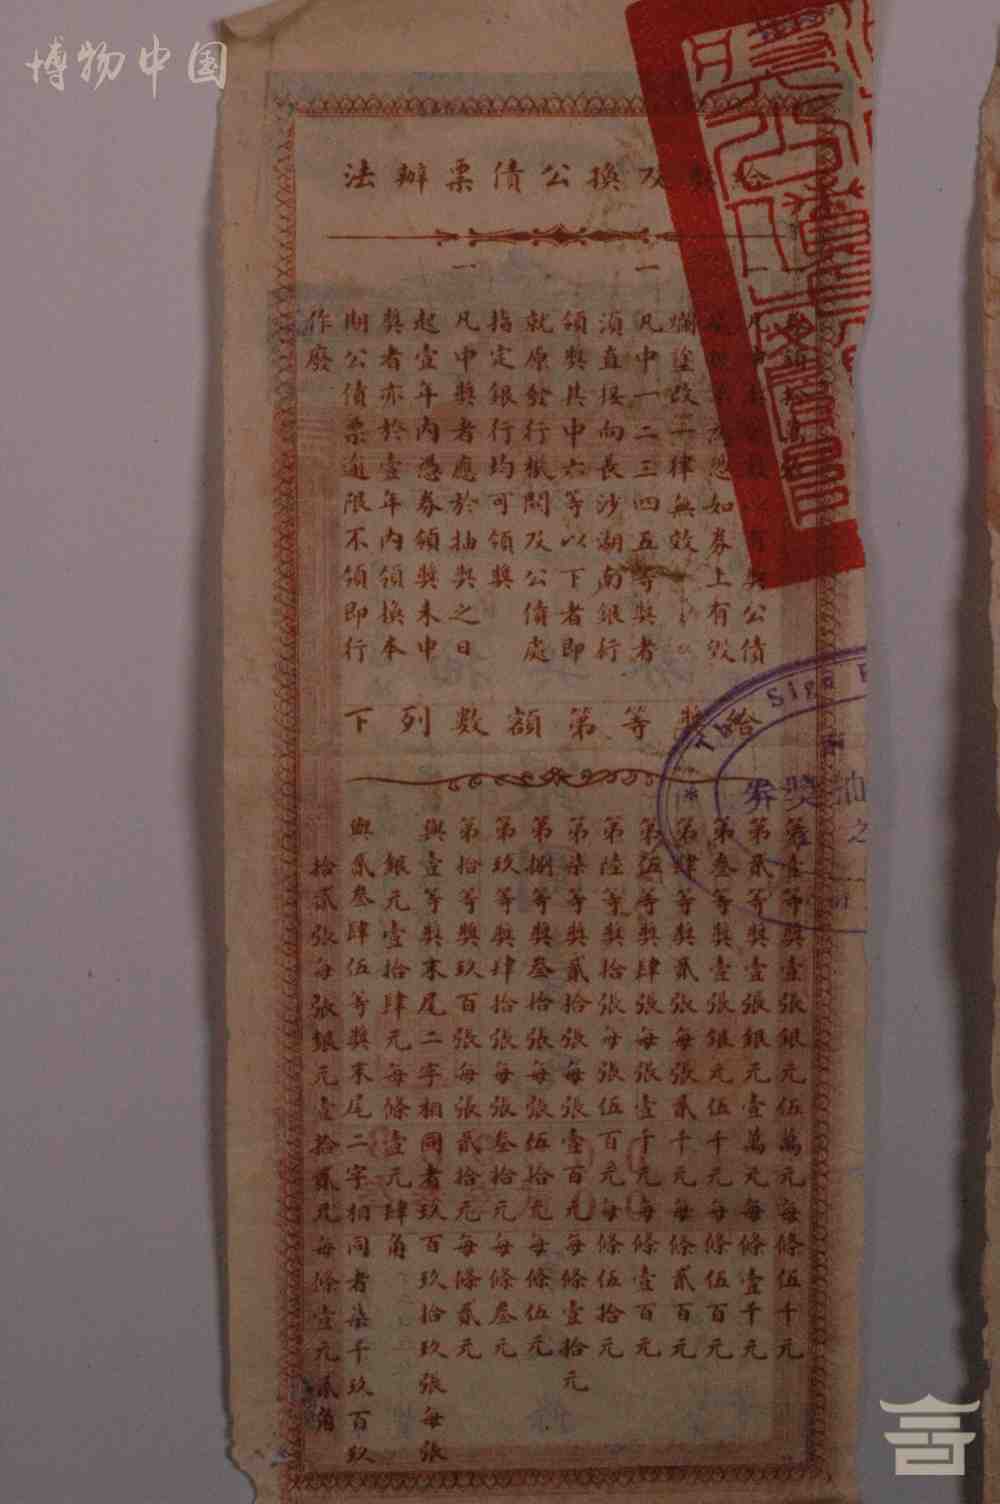 博物中国
給獎及換公債票辦法
債
以有獎公債
如券上有毀
爛塗改一律無效
一
凡中一二三四五等獎者
須直接向長沙湖南銀行
領獎其中六等以下者即
就原發行機關及公債處
指定銀行均可領獎
一
凡中獎者應於抽獎之日
起壹年內憑券領獎未中
獎者亦於壹年內領換本
期公債票逾限不領即行
作廢
給獎等第額數列下
第壹等獎壹張銀元伍萬元每條伍千元
第貳等獎壹張銀元壹萬元每條壹千元
第叁等獎壹張銀元伍千元每條伍百元
第肆等獎貳張每張貳千元每條貳百元
第伍等獎肆張每張壹千元每條壹百元
第陸等獎拾張每張伍百元每條伍拾元
第柒等獎貳拾張每張壹百元每條壹拾元
第捌等獎叁拾張每張伍拾元每條伍元
第玖等獎肆拾張每張叁拾元每條叁元
第拾等獎玖百張每張貳拾元每條貳元
與壹等獎末尾二字相同者玖百玖拾玖張每張
銀元壹拾肆元每條壹元肆角
與貳叁肆伍等獎末尾二字相同者柒千玖百玖
拾貳張每張銀元壹拾貳元每條壹元貳角
The Siga
抽獎券
之